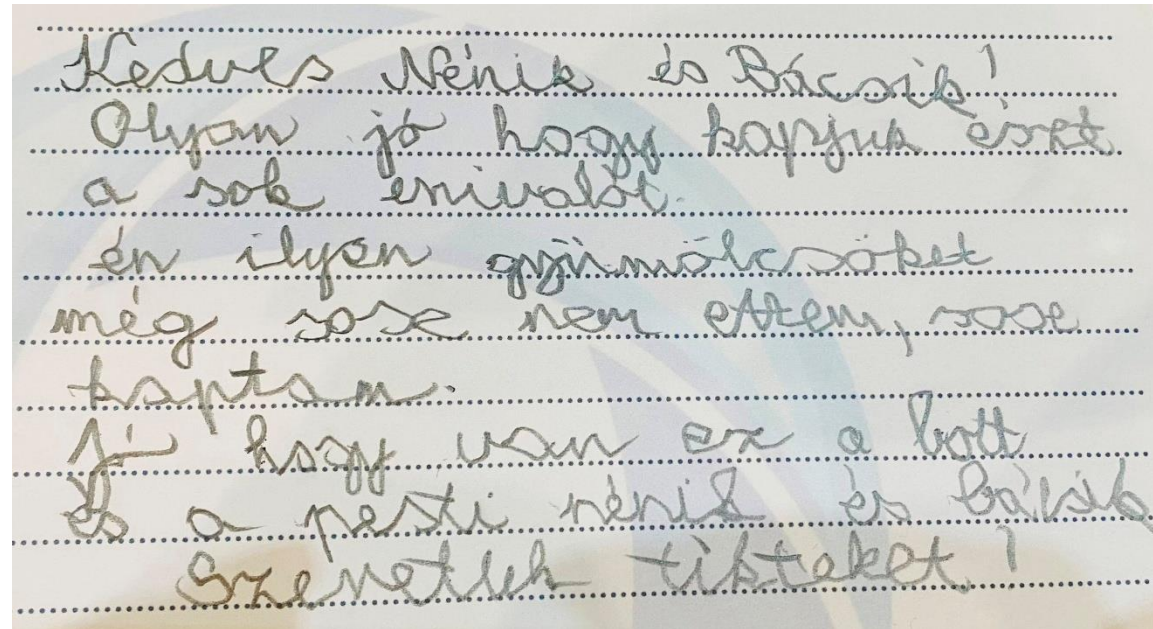 Kedves Nénik és Bácsik!
Olyan jó hogy kapjuk eszt
a sok enivalót.
én ilyen gyümölcsöket
még sose nem ettem, sose
kaptam.
Jó hogy van ez a bott
És a pesti nénik és bácsik
Szeretlek tikteket!